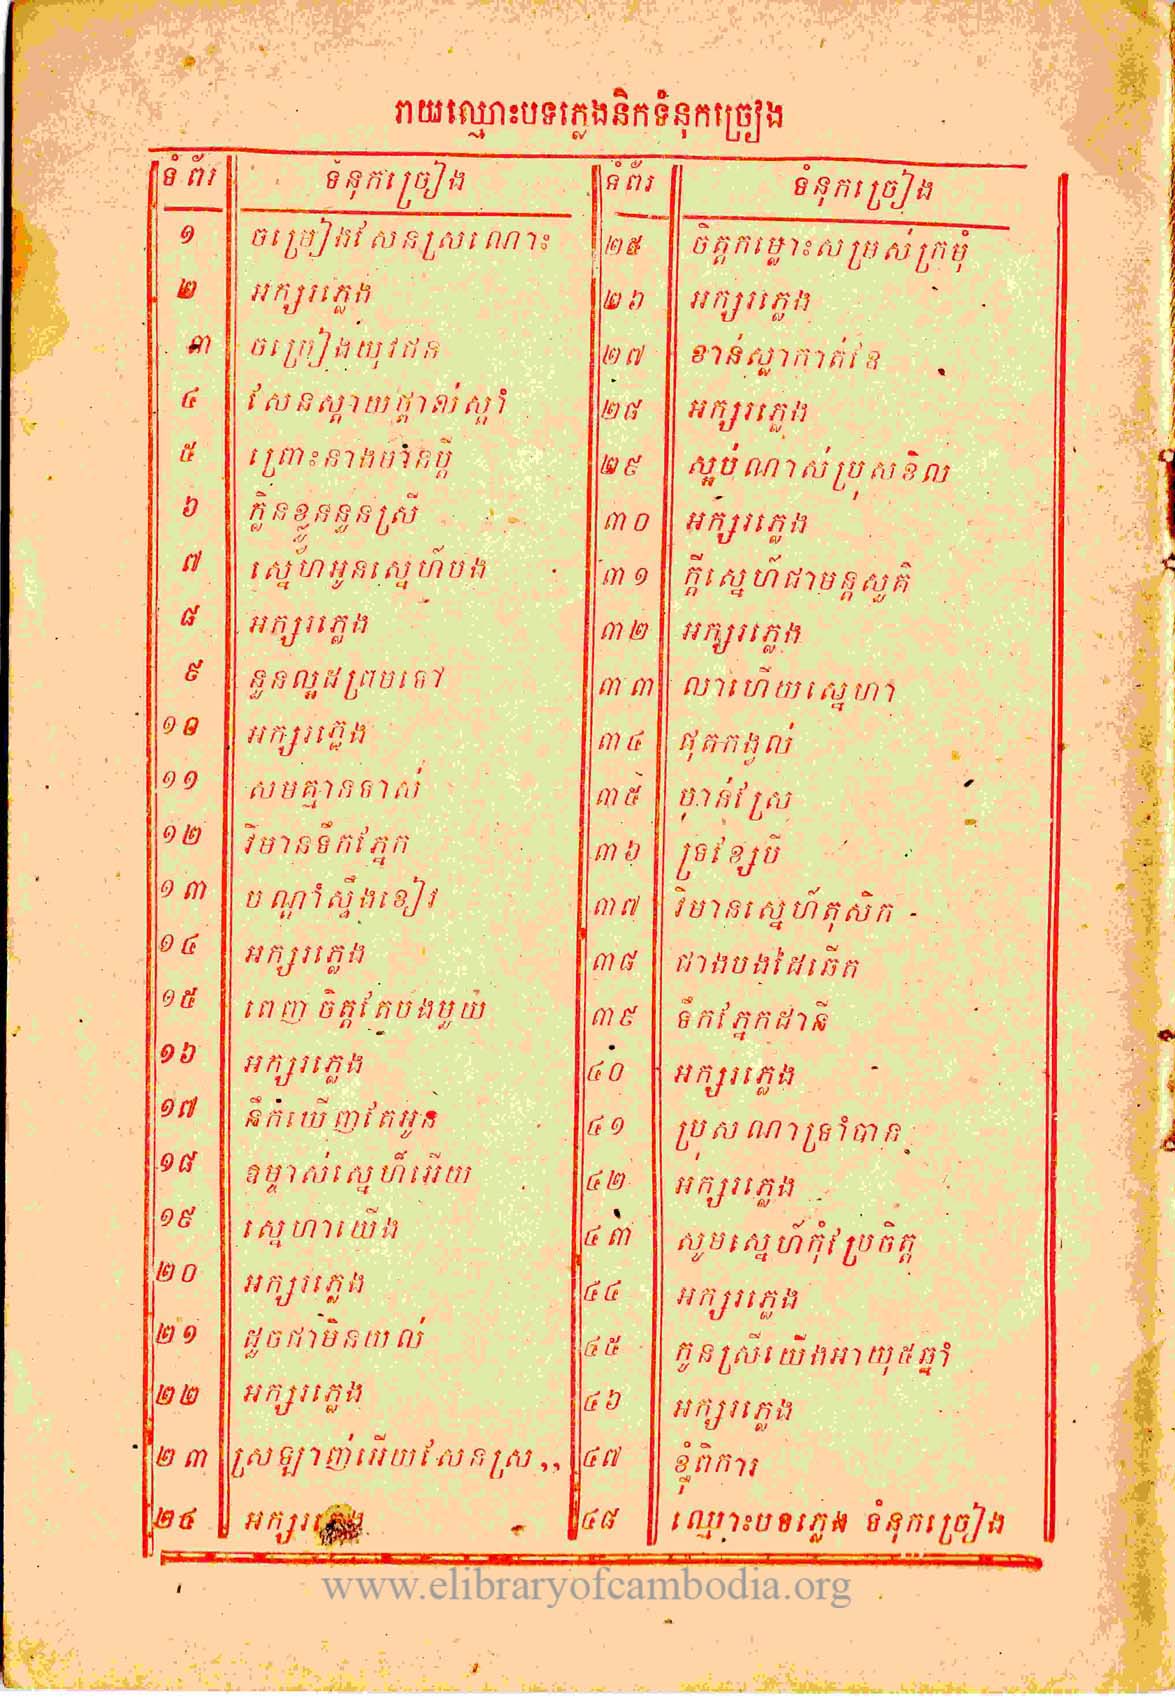 រាយឈ្មោះបទភ្លេងនិកទំនុកច្រៀង
ទំព័រ ទំនុកច្រៀង
១ ចម្រៀងសែនស្រណោះ
២ អក្សរភ្លេង
៣ ចម្រៀងយុវជន
៤ សែនស្តាយផ្តាល់ស្តាំ
៥ ព្រោះនាងមានប្តី
៦ ក្លិនខ្លួននួនស្រី
៧ ស្នេហ៍អូនស្នេហ៍បង
៨ អក្សរភ្លេង
៩ នួនល្អដព្រមទៅ
១០ អក្សរភ្លេង
១១ សមគ្មានទាស់
១២ វិមានទឹកភ្នែក
១៣ បណ្តាំស្ទឹងខៀវ
១៤ អក្សរភ្លេង
១៥ ពេញចិត្តតែបងមួយ
១៦ អក្សរភ្លេង
១៧ នឹកឃើញតែអូន
១៨ ឧម្ចាស់ស្នេហ៍អើយ
១៩ ស្នេហាយើង
២០ អក្សរភ្លេង
២១ ដួចជាមិនយល់
២២ អក្សរភ្លេង
២៣ ស្រឡាញ់អើយសែនស្រ,,
២៤ អក្សរភ្លេង
ទំព័រ ទំនុកច្រៀង
២៥ ចិត្តកម្លោះសម្រស់ក្រមុំ
២៦ អក្សរភ្លេង
២៧ ខាន់ស្លាកាត់ខែ
២៨ អក្សរភ្លេង
២៩ ស្អប់ណាស់ប្រុសខិល
៣០ អក្សរភ្លេង
៣១ ក្តីស្នេហ៍ជាមន្តសួគ៌
៣២ អក្សរភ្លេង
៣៣ លាហើយស្នេហា
៣៤ ផុតកង្វល់
៣៥ ម៉ាន់វស្រែ
៣៦ ទ្រខ្សែបី
៣៧ វិមានស្នេហ៍តុសិត
៣៨ ជាងបងដៃឆើត
៣៩ ទឹកភ្នែកដានី
៤០ អក្សរភ្លេង
៤១ ប្រុសណាទ្រាំបាន
៤២ អក្សរភ្លេង
៤៣ សូមស្នេហ៍កុំប្រែចិត្ត
៤៤ អក្សរភ្លេង
៤៥ កូនស្រីយើងអាយុ៥ឆ្នាំ
៤៦ អក្សរភ្លេង
៤៧ ខ្ញុំពិការ
៤៨ ឈ្មោះបទភ្លេង ទំនុកច្រៀង
www.elibraryofcambodia.org